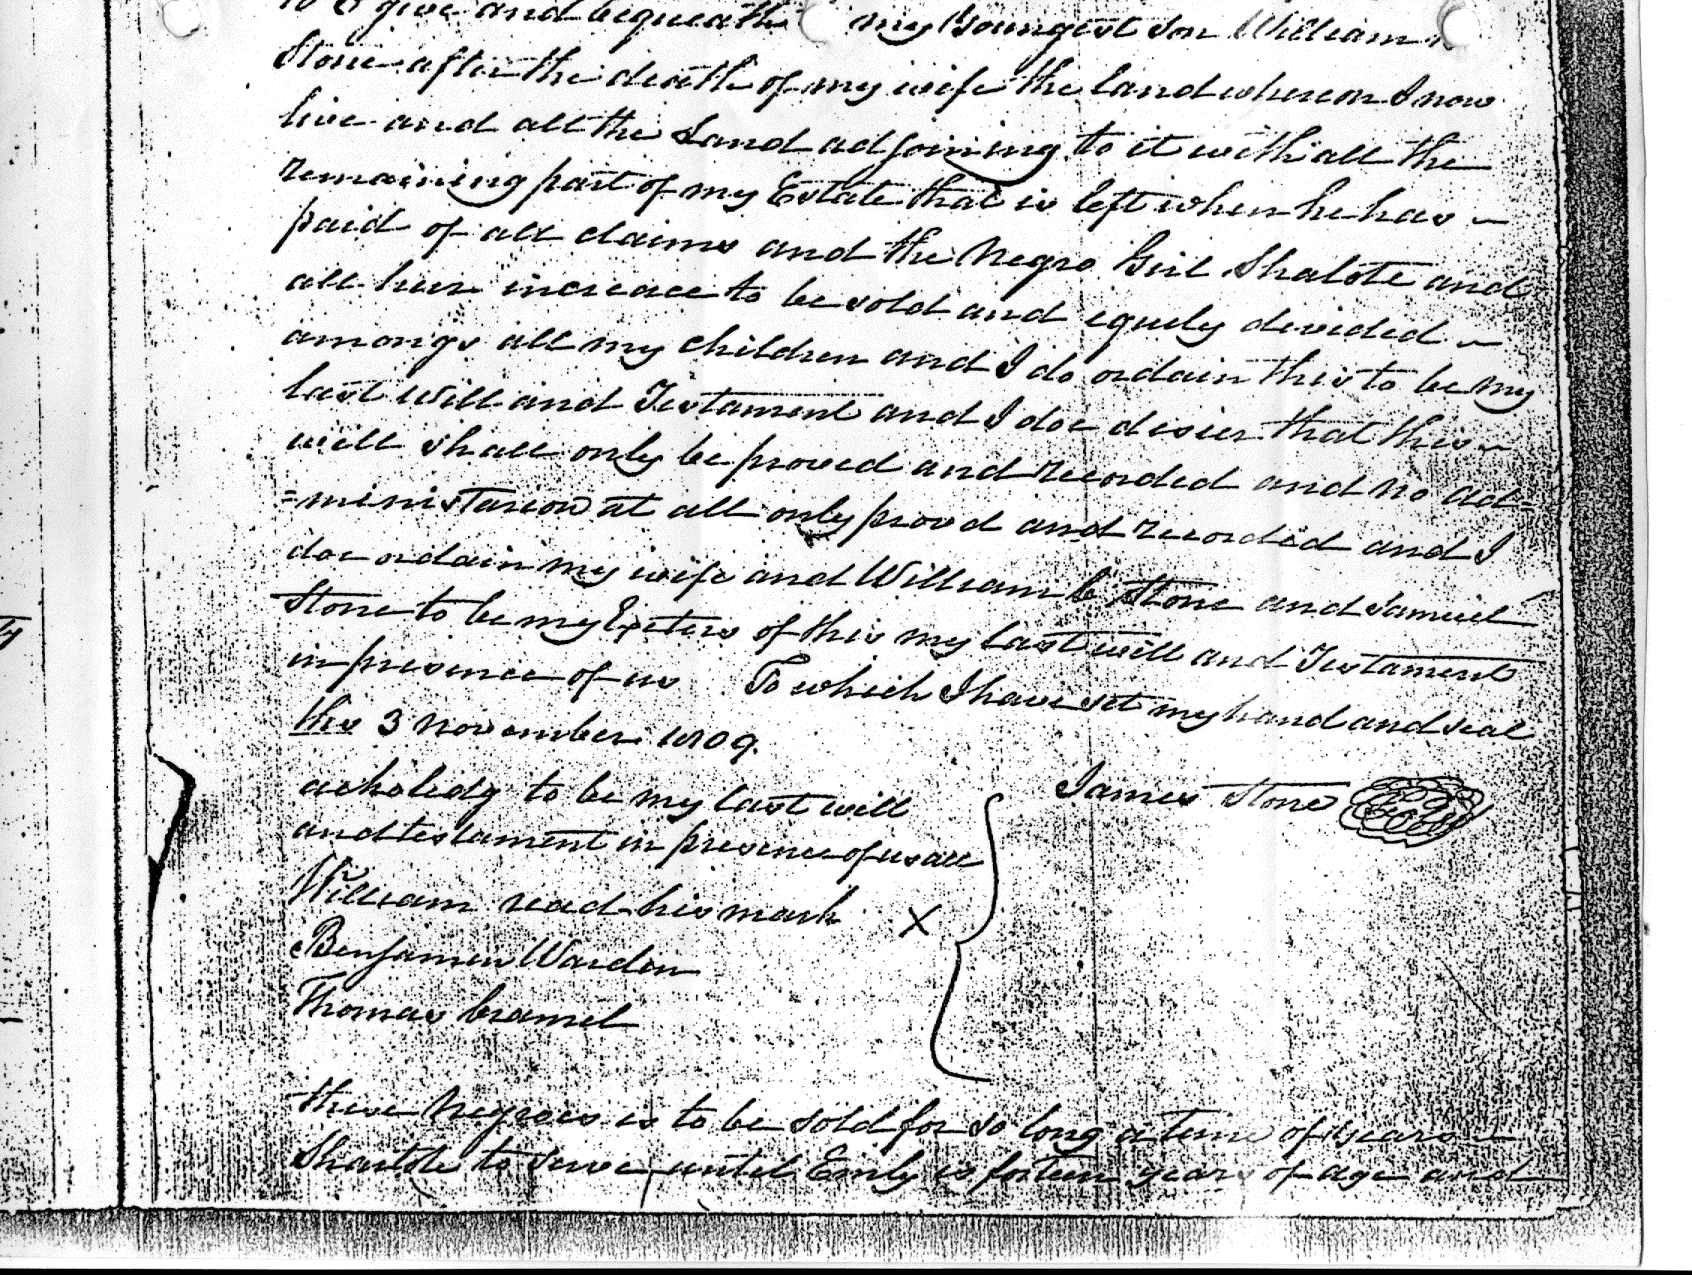 I give and bequeath my youngest son William
Stone after the death of my wife the land whereon I now
live and all the Land adjoining to it with all the
remaining part of my Estate that is left when he has
paid of all claims and the Negro Girl Shalote and
all her increace to be sold and equely devided
amongs all my children and I do ordain this to be my
last Will and Testament and I doe desier that this
will shall only be proved and recorded and no ad=
=ministarion at all only provd and recorded and I
doe ordain my wife and William B Stone and Samuel
Stone to be my Exeters of this my last will and Testament
in presence of us To which I have set my hand and seal
this 3 November 1809.
acknoledg to be my last will
and testament in presence of us all
James Stone
William read his mark X
Benjamin Warden
Thomas Bramel
these Negroes is to be sold for so long a Time of years
Sharlote to serve until Emly is forteen years of age and